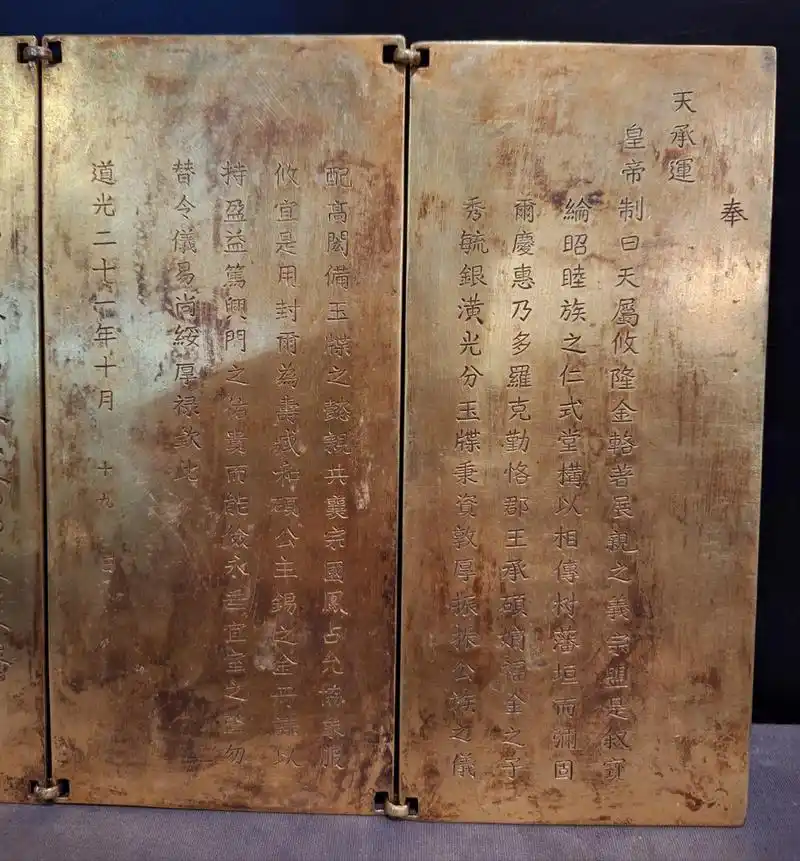 奉
天承運
皇帝制曰天屬攸隆金輅著展親之義宗盟是敘寶
綸昭睦族之仁式堂構以相傳樹藩垣而彌固
爾慶惠乃多羅克勤恪郡王承碩嫡福金之子
秀毓銀潢光分玉牒秉資敦厚振振公族之儀
配高閎備玉牒之懿親共襄宗國鳳占允協象服
攸宜是用封爾為壽臧和碩公主錫之金冊謙以
持盈益篤興門之祜貴而能儉永垂宜室之型勿
替令儀易尚綏厚祿欽此
道光二十一年十月十九日